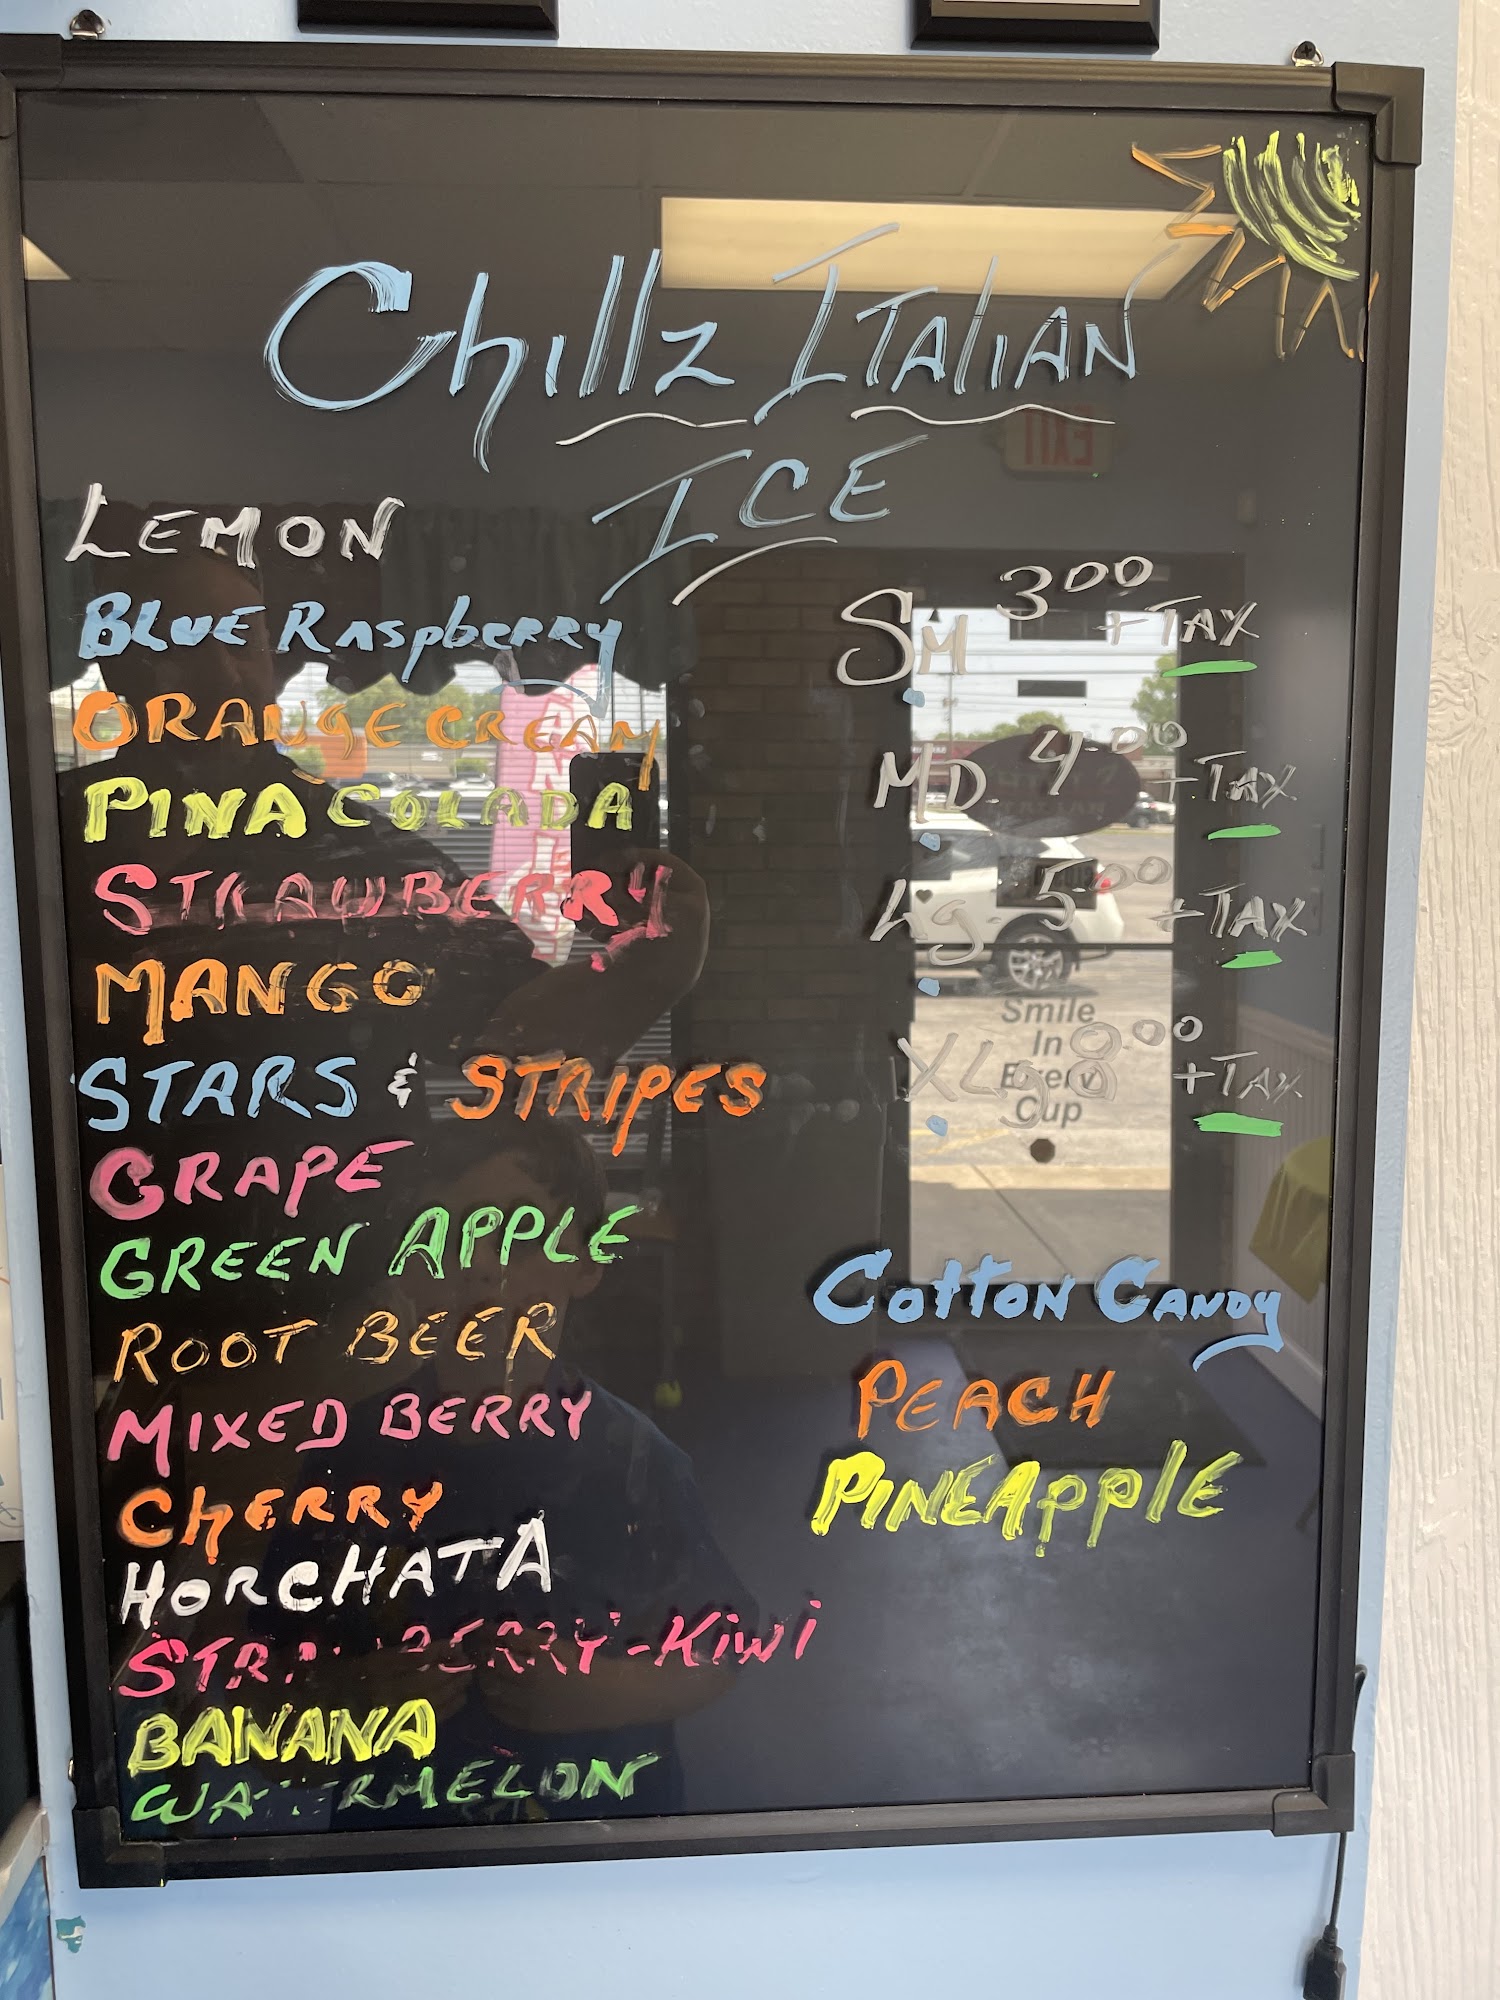 Chillz Italian
ICE
LEMON
BLUE Raspberry
ORANGE CREAM
PINA COLADA
STRAWBERRY
MANGO
STARS & STRIPES
GRAPE
GREEN APPLE
ROOT BEER
MIXED BERRY
CHERRY
HORCHATA
STRAWBERRY-KiWi
BANANA
WATERMELON
SM 3.00 + TAX
MD 4.00 + TAX
Lg 5.00 + TAX
XLg 8.00 + TAX
Cotton CANDY
PEACH
PINEApplE
EXIT
Smile
In
Every
Cup